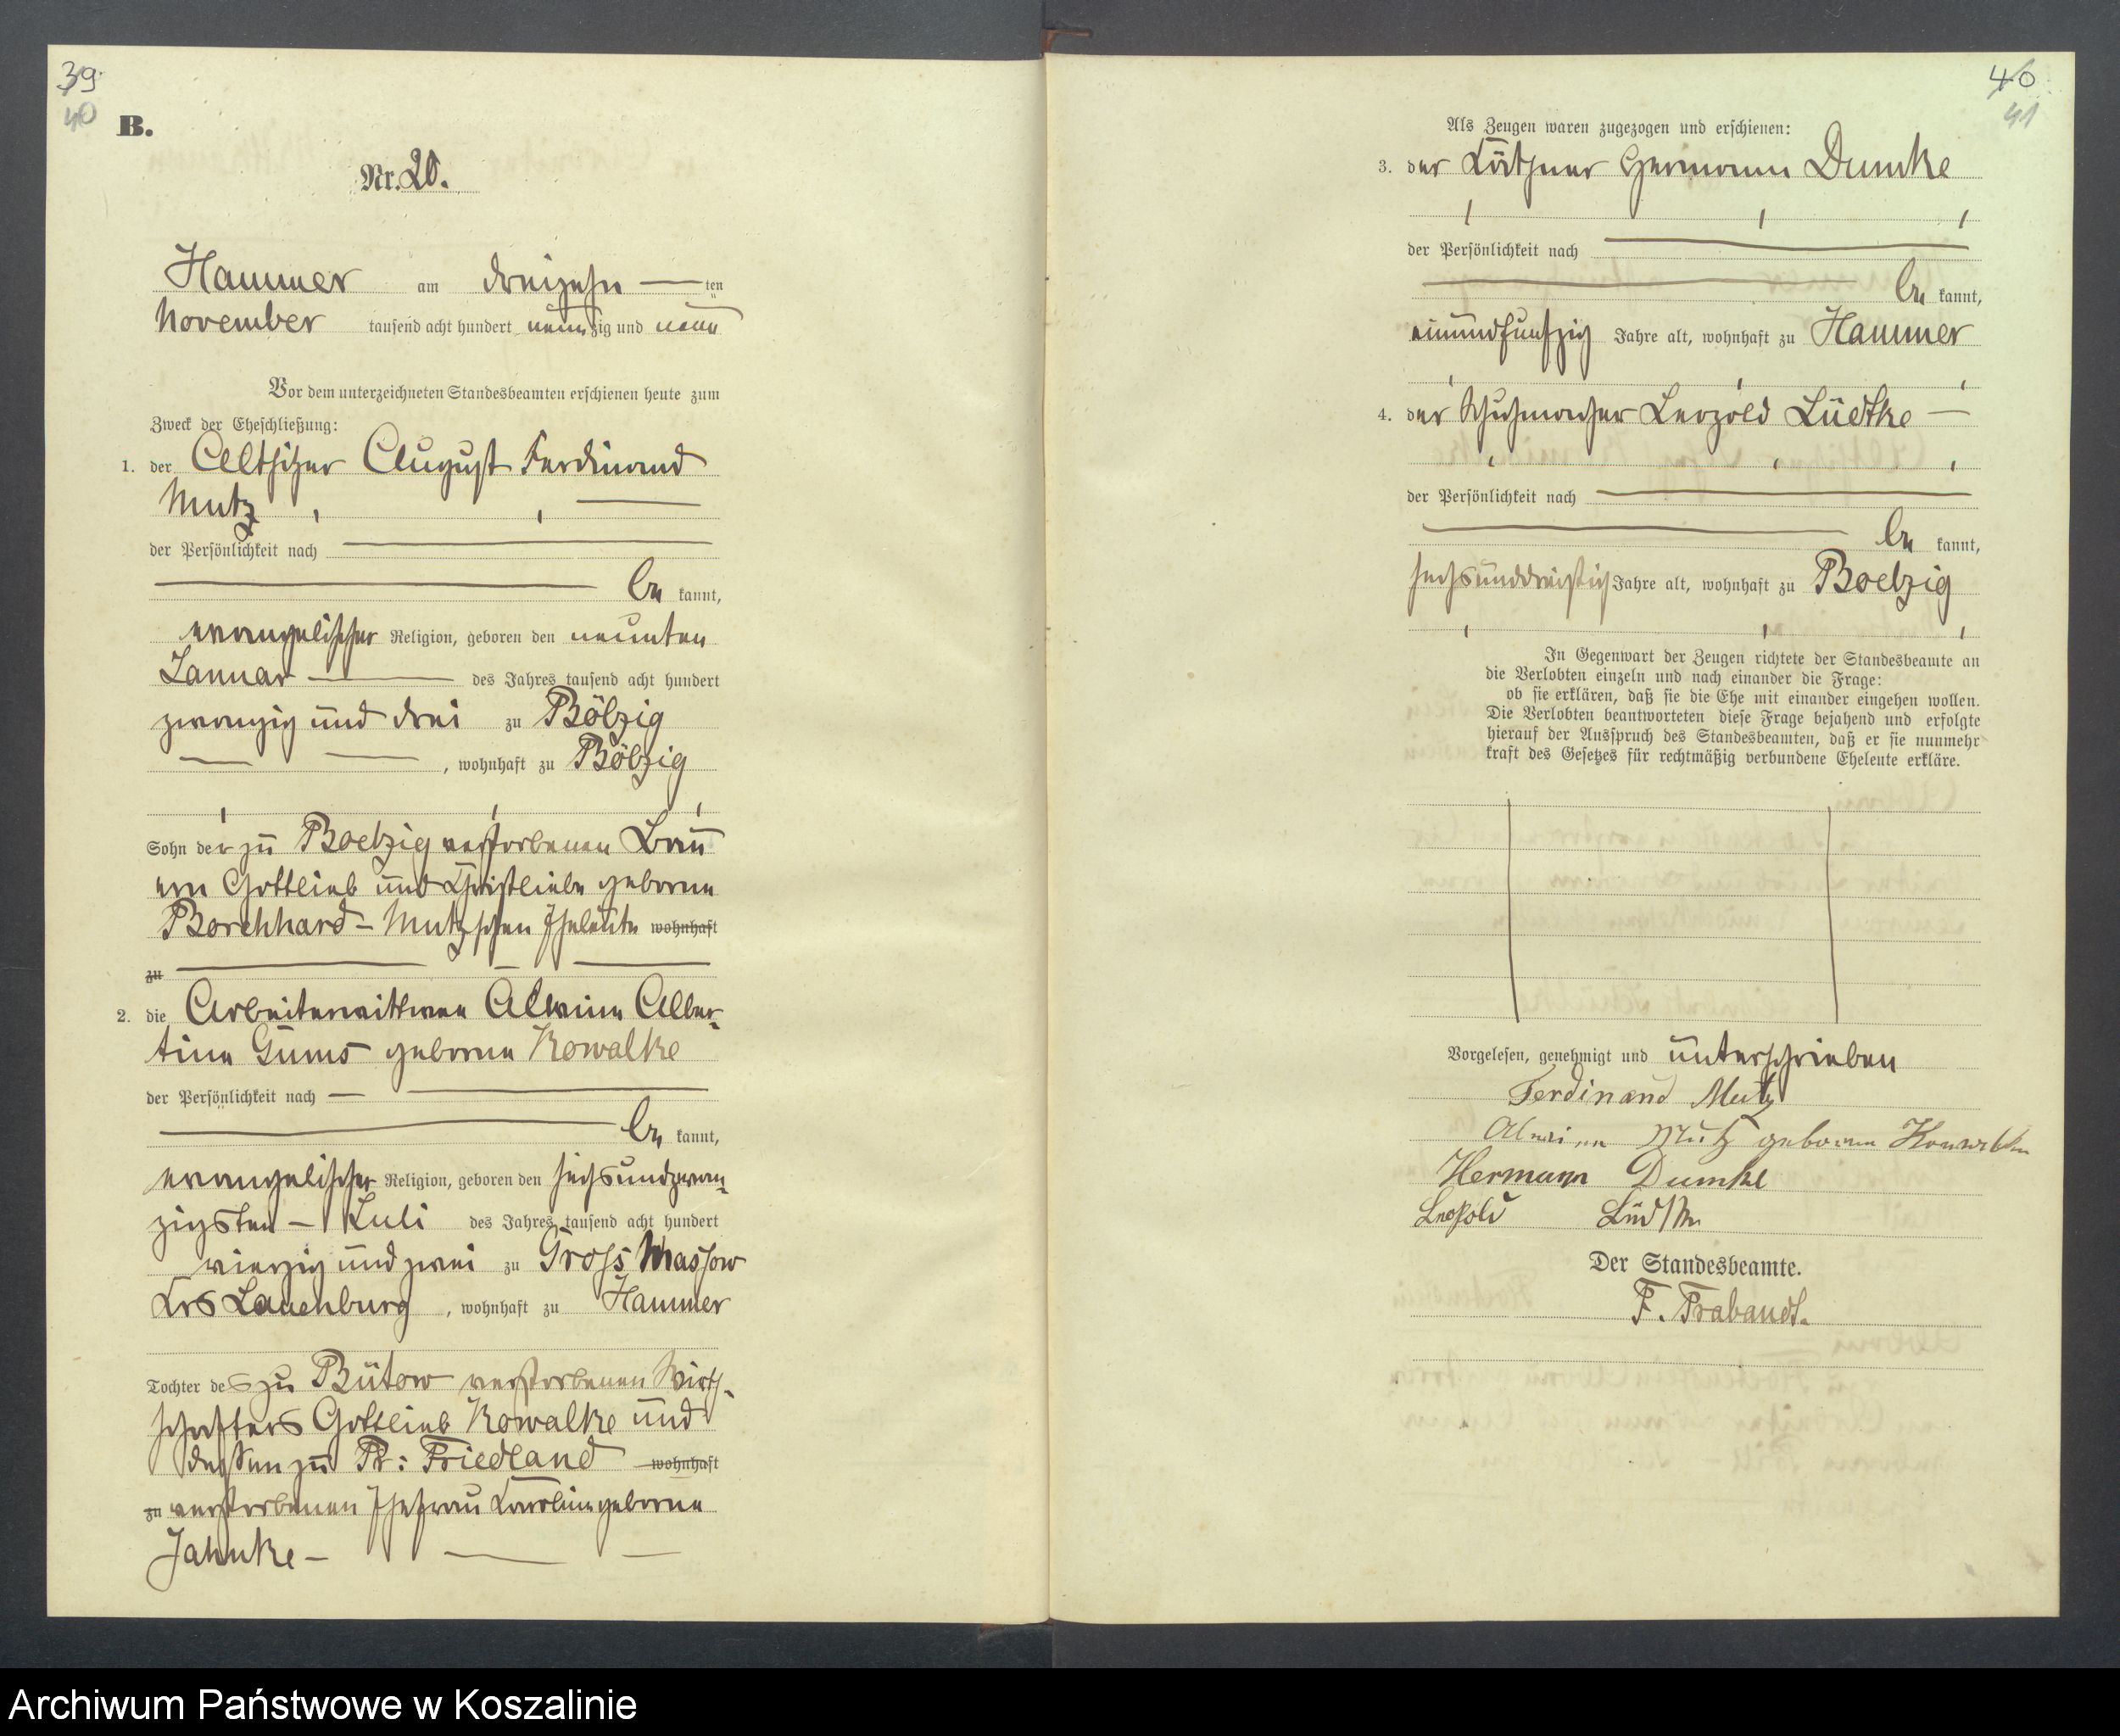 39
40
B.
Nr. 20.
Hammer am dreizehn ten
November tausend acht hundert neunzig und neun
Vor dem unterzeichneten Standesbeamten erschienen heute zum
Zweck der Eheschließung:
1. der Altsitzer August Ferdinand
Mutz
der Persönlichkeit nach
be kannt,
evangelischer Religion, geboren den neunten
Januar des Jahres tausend acht hundert
zwanzig und drei zu Bölzig
, wohnhaft zu Bölzig
Sohn der zu Boelzig verstorbenen Bau
ern Gottlieb und Christliebe geborne
Borchhard - Mutzschen Eheleute wohnhaft
zu
2. die Arbeiterwittwe Alwine Alber-
tine Gums geborne Kowalke
der Persönlichkeit nach
be kannt,
evangelischer Religion, geboren den sechsundzwan-
zigsten - Juli des Jahres tausend acht hundert
vierzig und zwei zu Gross Massow
Krs Lauenburg , wohnhaft zu Hammer
Tochter des zu Bütow verstorbenen Wirth-
schafters Gottlieb Kowalke und
dessen zu Pr: Friedland wohnhaft
zu verstorbenen Ehefrau Karoline geborne
Jahnke -
40
41
Als Zeugen waren zugezogen und erschienen:
3. der Käthner Hermann Dumke
der Persönlichkeit nach
be kannt,
einundfunfzig Jahre alt, wohnhaft zu Hammer
4. der Schuhmacher Leopold Lüdtke
der Persönlichkeit nach
be kannt,
sechsunddreißig Jahre alt, wohnhaft zu Boelzig
In Gegenwart der Zeugen richtete der Standesbeamte an
die Verlobten einzeln und nach einander die Frage:
ob sie erklären, daß sie die Ehe mit einander eingehen wollen.
Die Verlobten beantworteten diese Frage bejahend und erfolgte
hierauf der Ausspruch des Standesbeamten, daß er sie nunmehr
kraft des Gesetzes für rechtmäßig verbundene Eheleute erkläre.
Vorgelesen, genehmigt und unterschrieben
Ferdinand Mutz
Alwine Mutz geborne Kowalke
Hermann Dumke
Leopold Lüdtke
Der Standesbeamte.
F. Prabandt.
Archiwum Państwowe w Koszalinie